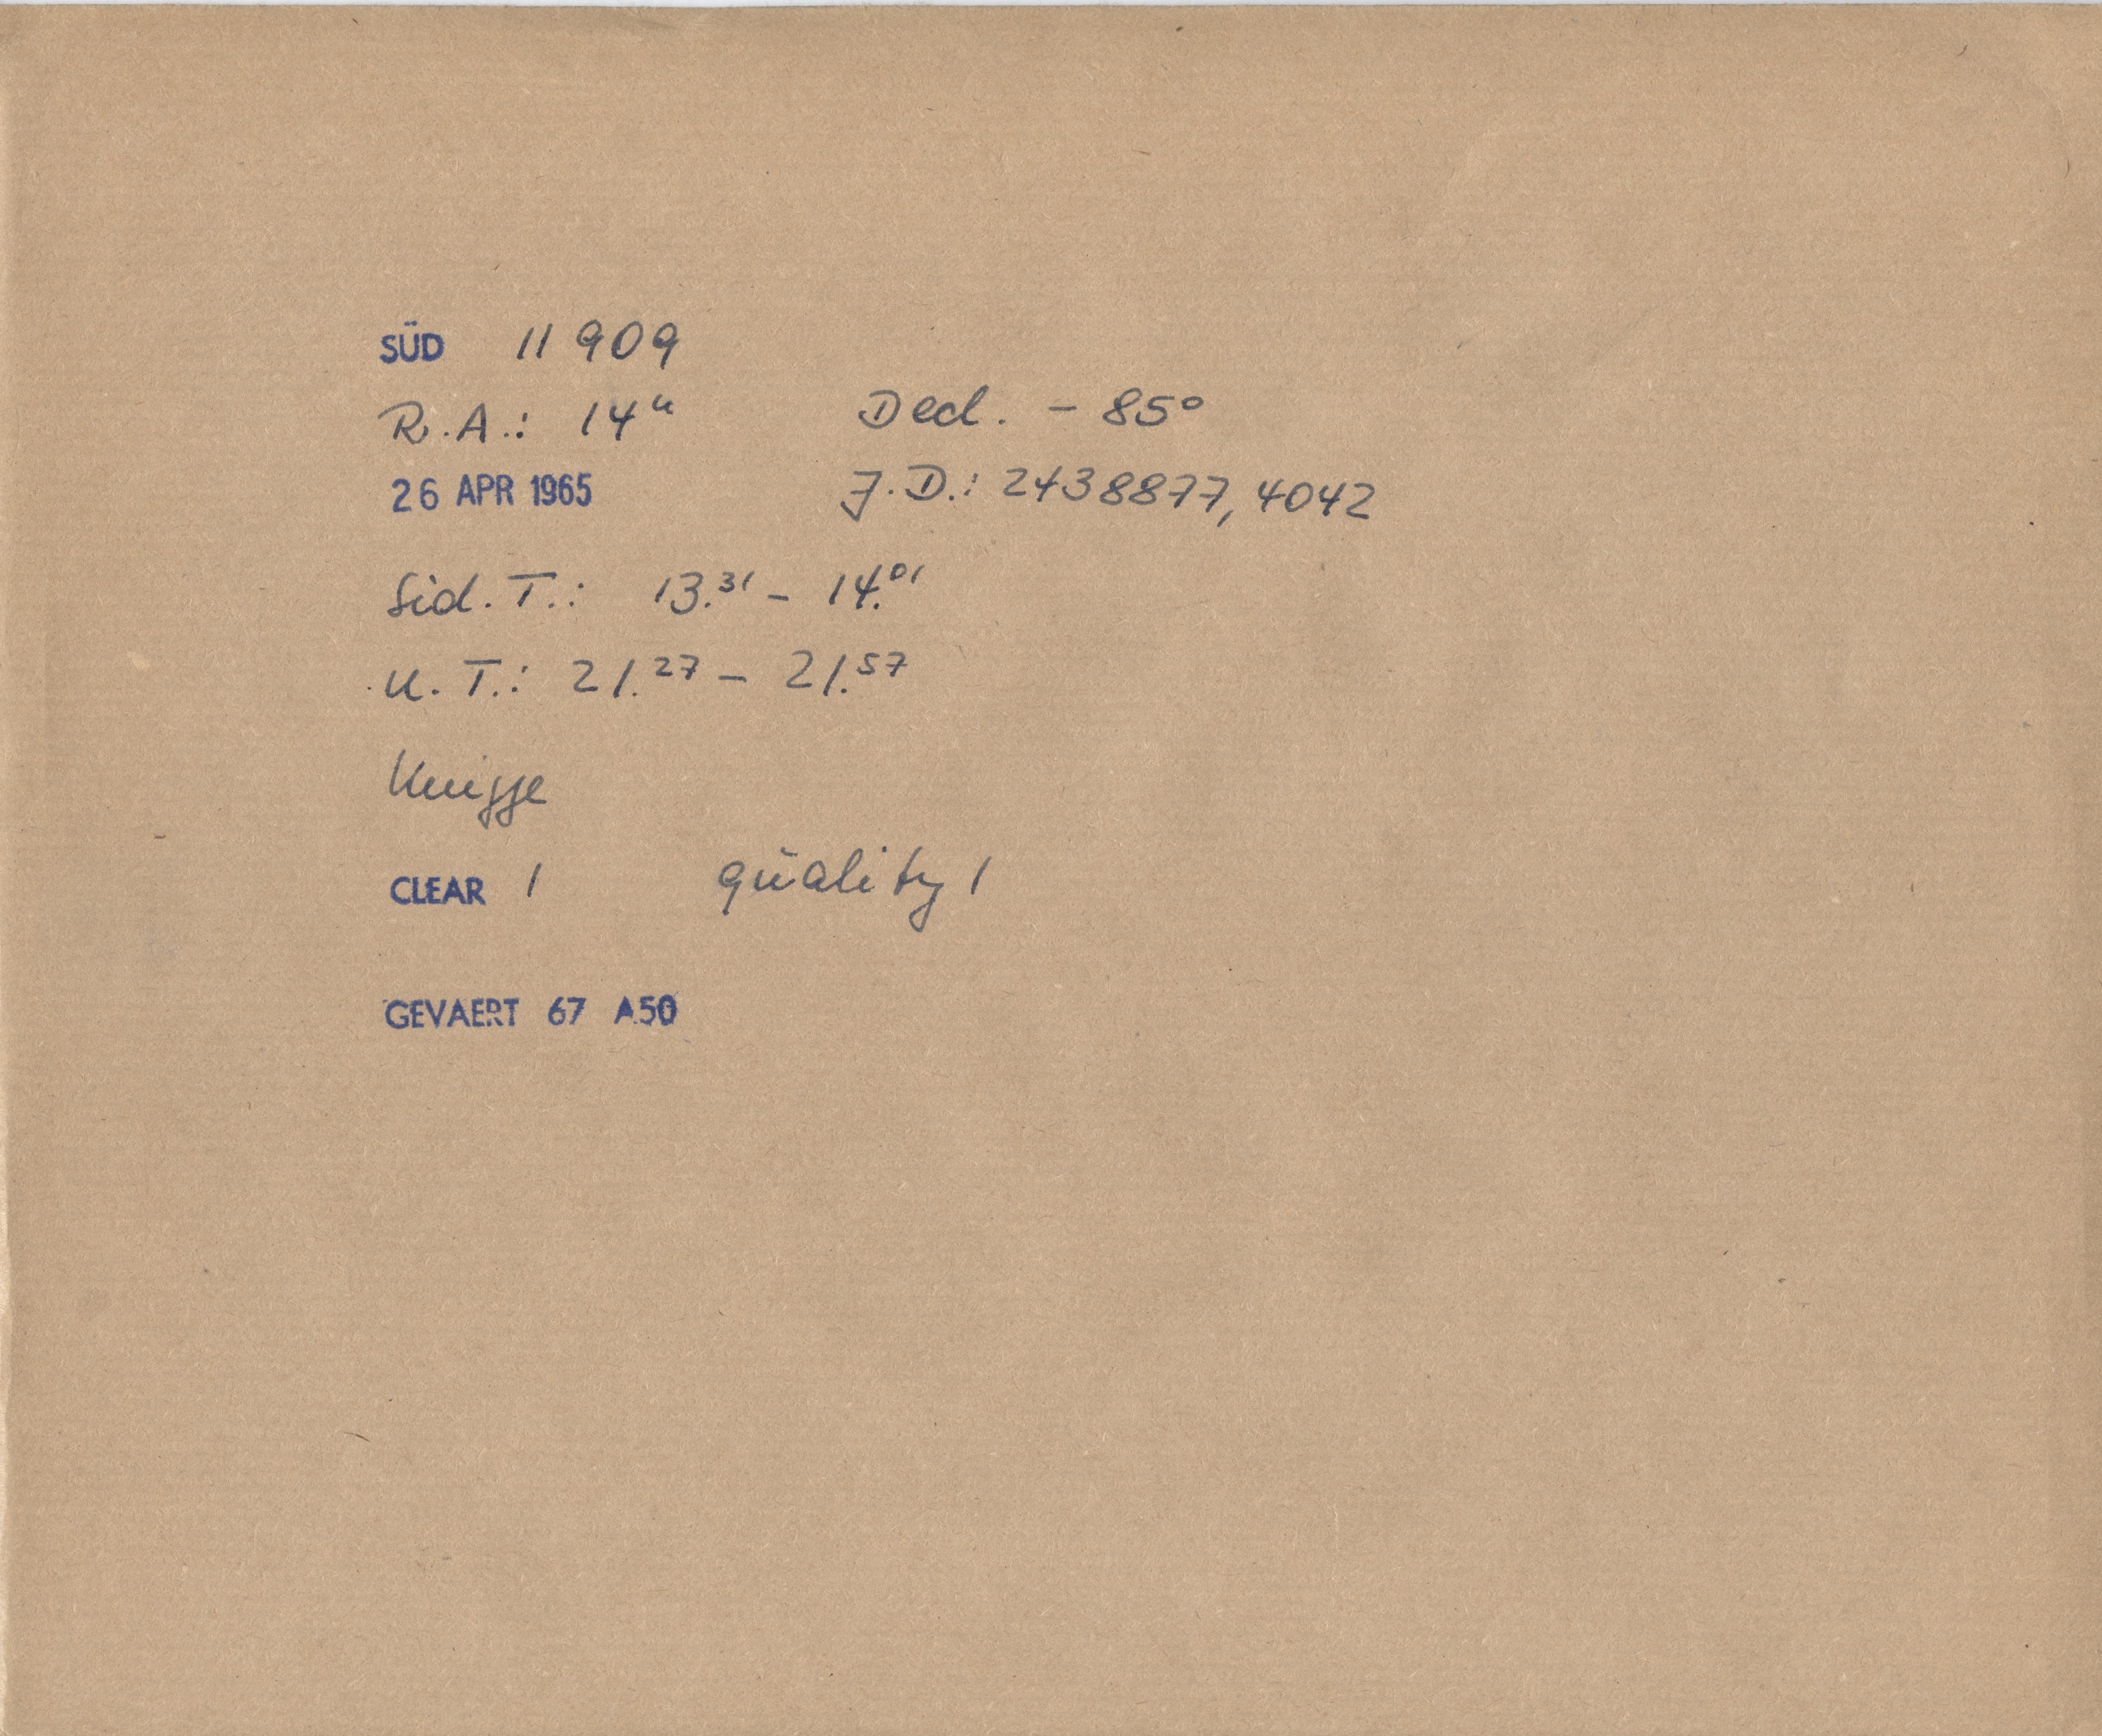 SÜD 11 909
R.A.: 14ʰ Decl. - 85°
26 APR 1965 J.D.: 2438877,4042
Sid. T.: 13.³¹ - 14.⁰¹
U. T.: 21.²⁷ - 21.⁵⁷
Knigge
CLEAR 1 quality 1
GEVAERT 67 A50